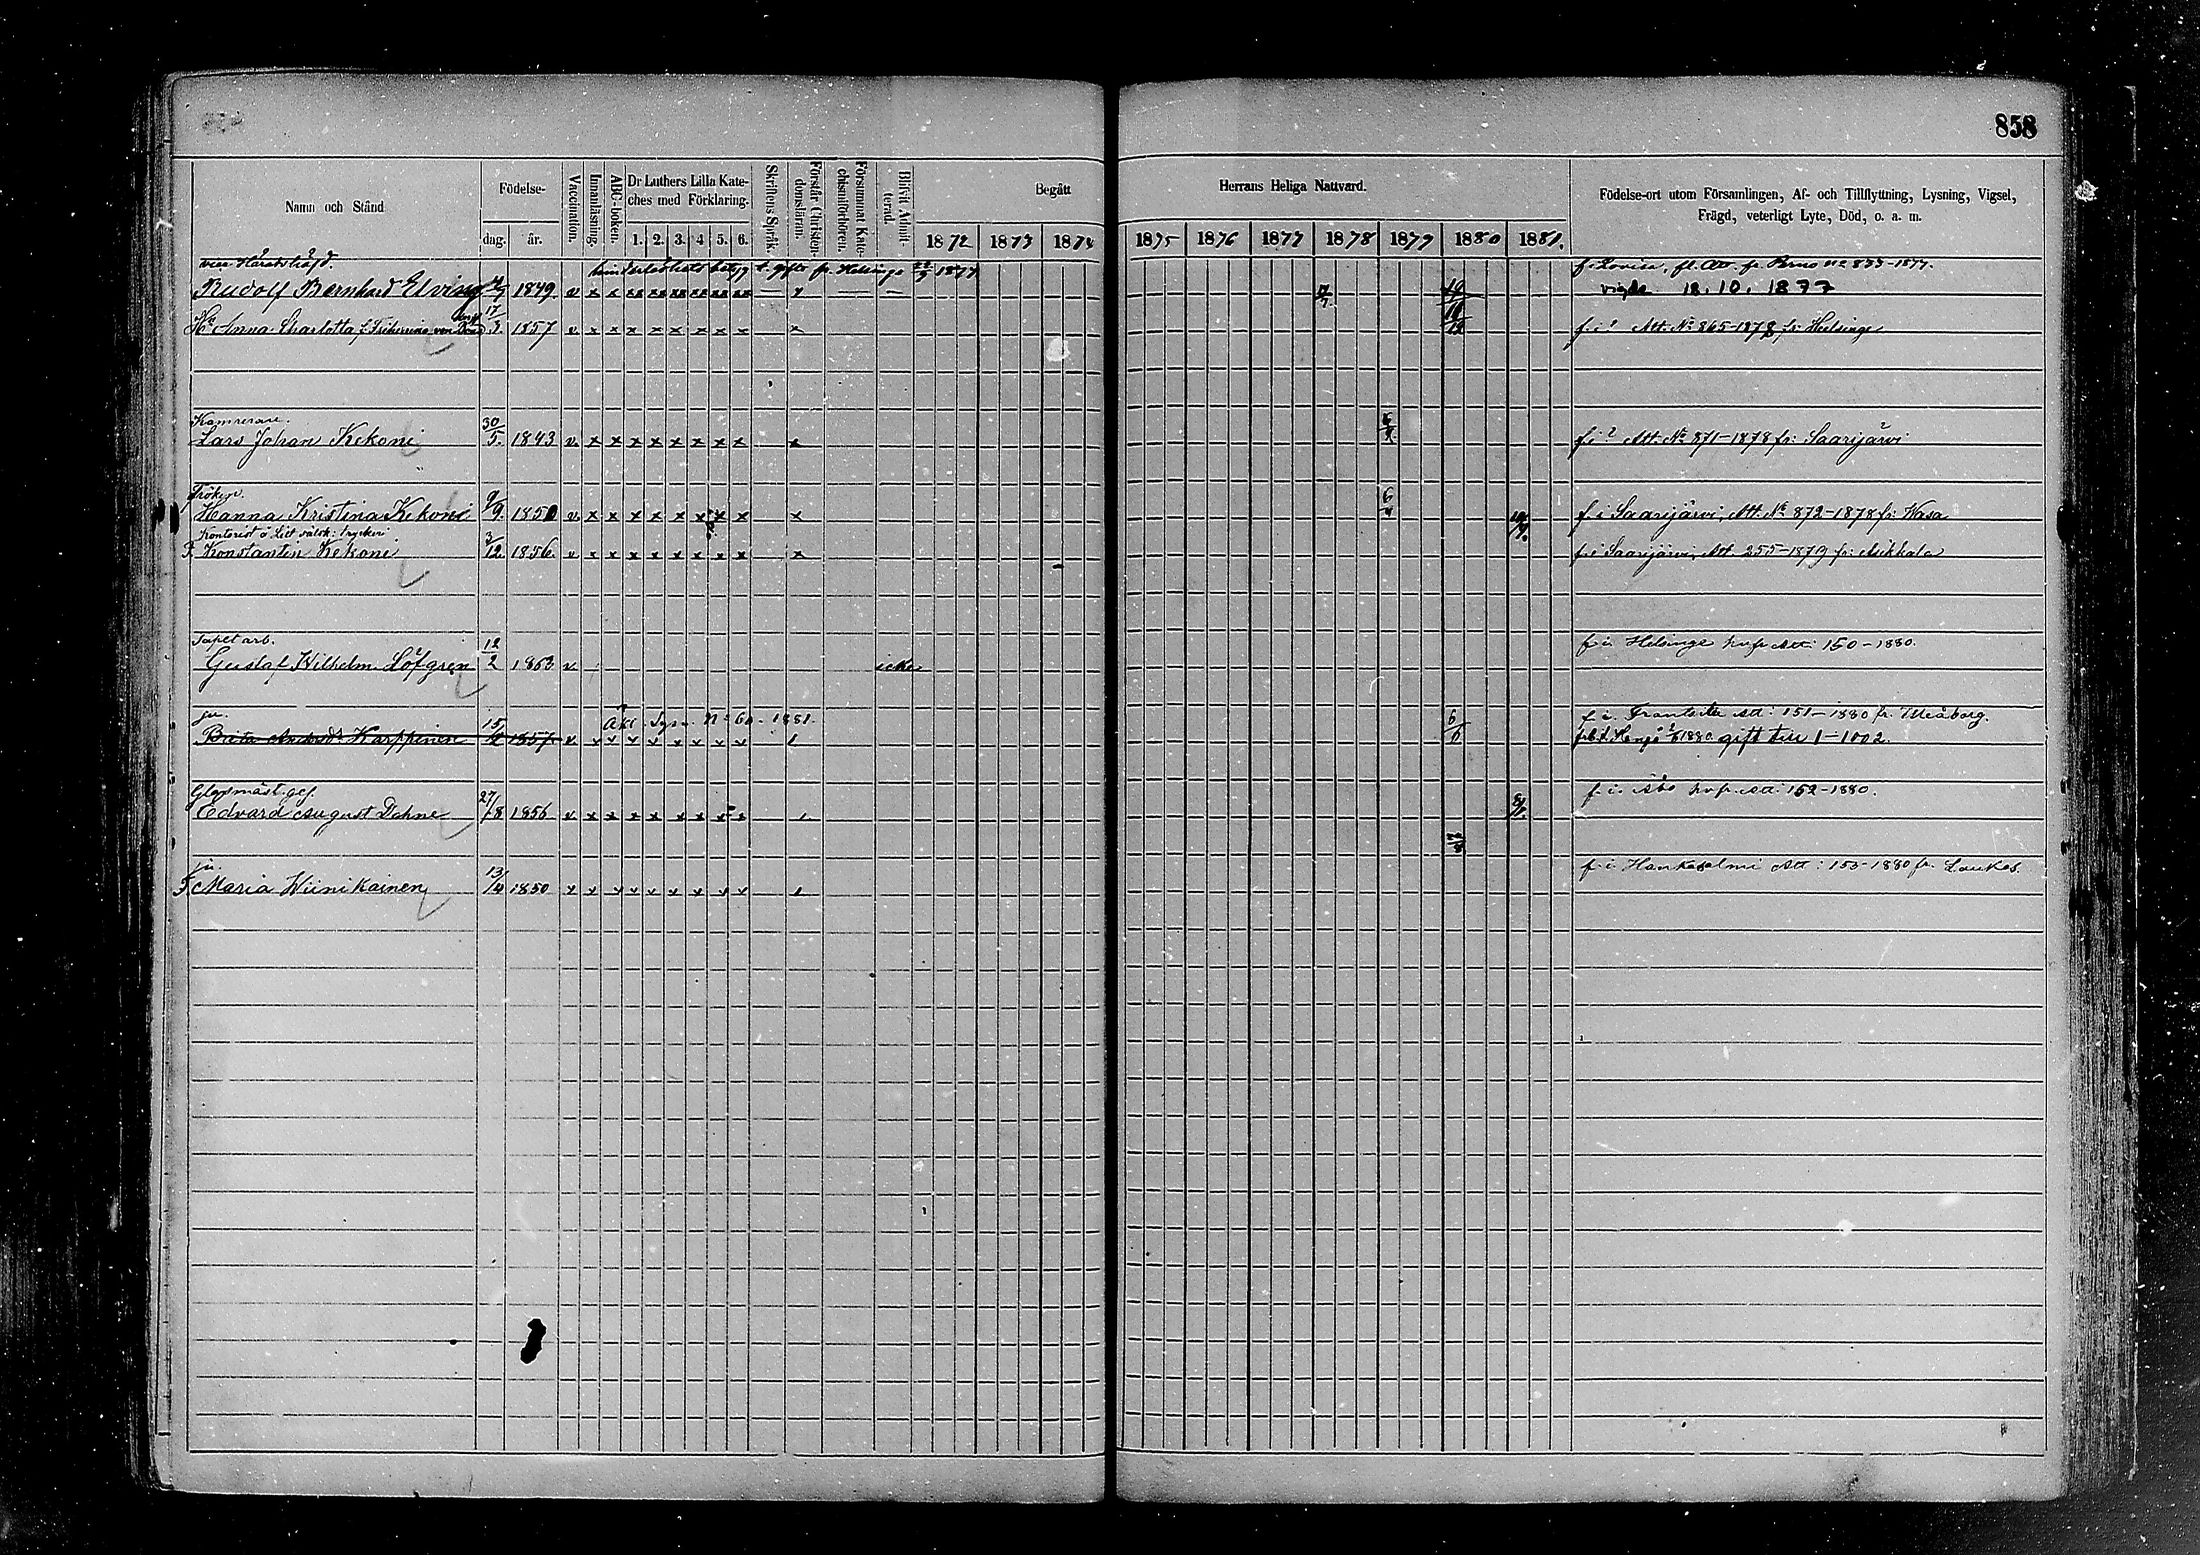 858
Namn och Stånd
Födelse-
dag. år.
Vaccination.
Innanläsning.
ABC-boken.
Dr Luthers Lilla Kate-
ches med Förklaring.
1. 2. 3. 4 5. 6.
Skriftens Språk.
Förstår Christen-
domsläran.
Försummat Kate-
chismiförhören.
Blifvit Admit-
terad.
Begått Herrans Heliga Nattvard.
1872 1873 1874 1875 1876 1877 1878 1879 1880 1881.
Födelse-ort utom Församlingen, Af- och Tillflyttning, Lysning, Vigsel,
Frägd, veterligt Lyte, Död, o. a. m.
vice Häradshöfd. hinderlöshets betyg t. gifte fr. Helsinge 1877 f. Lovisa, fl. Av. fr. 833-1877.
Rudolf Bernhard Elving 1849 v x x xx xx xx xx xx xx — x — — vigde 18. 10. 1877
Hu Anna Charlotta f. Friherrinna von 17/3 1857 v x x x x x x x x x f. i? Att. No 865-1878 fr. Helsinge
Kamrerare.
Lars Johan Kekoni 30/5. 1843 v x x x x x x x x x f i? Att. No 871-1878 fr. Saarijärvi
Fröken.
Hanna Kristina Kekoni 9/9. 1850 v x x x x x x x x x 6/4 f i Saarijärvi, Att. No 872-1878 fr. Wasa
Kontorist å Litt. sällsk: tryckeri
F. Konstantin Kekoni 3/12. 1856. v x x x x x x x x x f. i Saarijärvi, Att. 255-1879 fr. Asikkala
Tapet arb. f. i. Helsinge Att: 150-1880.
Gustaf Wilhelm Löfgren 12/2 1863 v icke
pu. Akt. Lysn. No 60-1881. f. i. Frantsila Att: 151-1880 fr. Uleåborg.
Brita Karppinen 15/2 1857 v v v v v v v v v 6/6 1880 gift till 1-1002.
Glasmäst. ges. f. i. Åbo Att: 152-1880.
Edvard August Dahne 27/8 1856 v x x x x x x x
pu. f. i Hankasalmi Att: 153-1880 fr. Laukas.
F. Maria Wiinikainen 13/4 1850 v v v v v v v v v